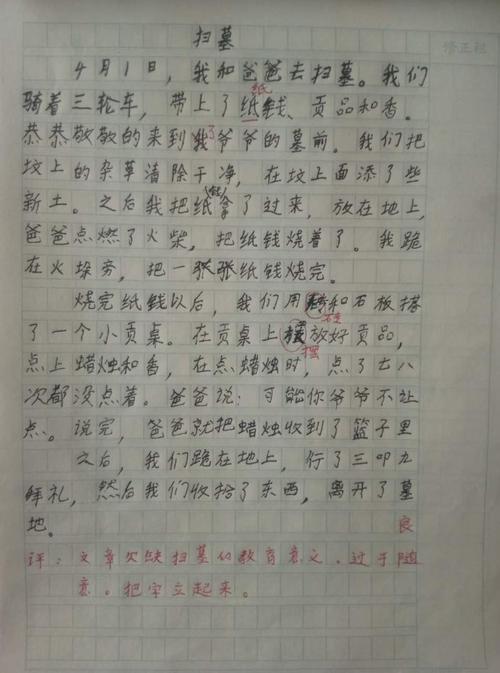 修正栏
扫墓
4月1日，我和爸爸去扫墓。我们
纸
骑着三轮车，带上了纸钱、贡品和香。
恭恭敬敬的来到了爷爷的墓前。我们把
坟上的杂草清除干净，在坟上面添了些
新土。之后我把纸拿了过来，放在地上，
爸爸点燃了火柴，把纸钱烧着了。我跪
在火垛旁，把一张张纸钱烧完。
烧完纸钱以后，我们用和石板搭
了一个小贡桌。在贡桌上放好贡品，
摆
点上蜡烛和香，在点蜡烛时，点了七八
次都没点着。爸爸说：可能你爷爷不让
点。说完，爸爸就把蜡烛收到了篮子里
之后，我们跪在地上，行了三叩九
拜礼，然后我们收拾了东西，离开了墓
地。
良
评：文章欠缺扫墓的教育意义，过于随
意。把字立起来。